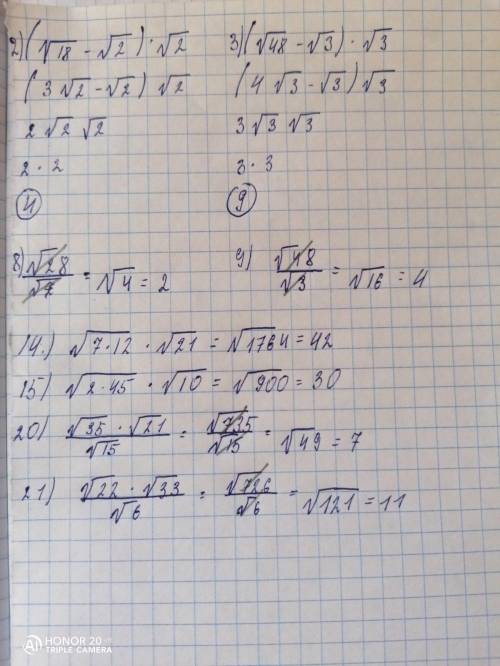 2) (√18 - √2) · √2
(3√2 - √2) √2
2√2 √2
2 · 2
4
3) (√48 - √3) · √3
(4√3 - √3) √3
3√3 √3
3 · 3
9
8) √28/√7 = √4 = 2
9) √48/√3 = √16 = 4
14.) √7·12 · √21 = √1764 = 42
15) √2·45 · √10 = √900 = 30
20) √35 · √21/√15 = √735/√15 = √49 = 7
21) √22 · √33/√6 = √726/√6 = √121 = 11
HONOR 20
AI TRIPLE CAMERA